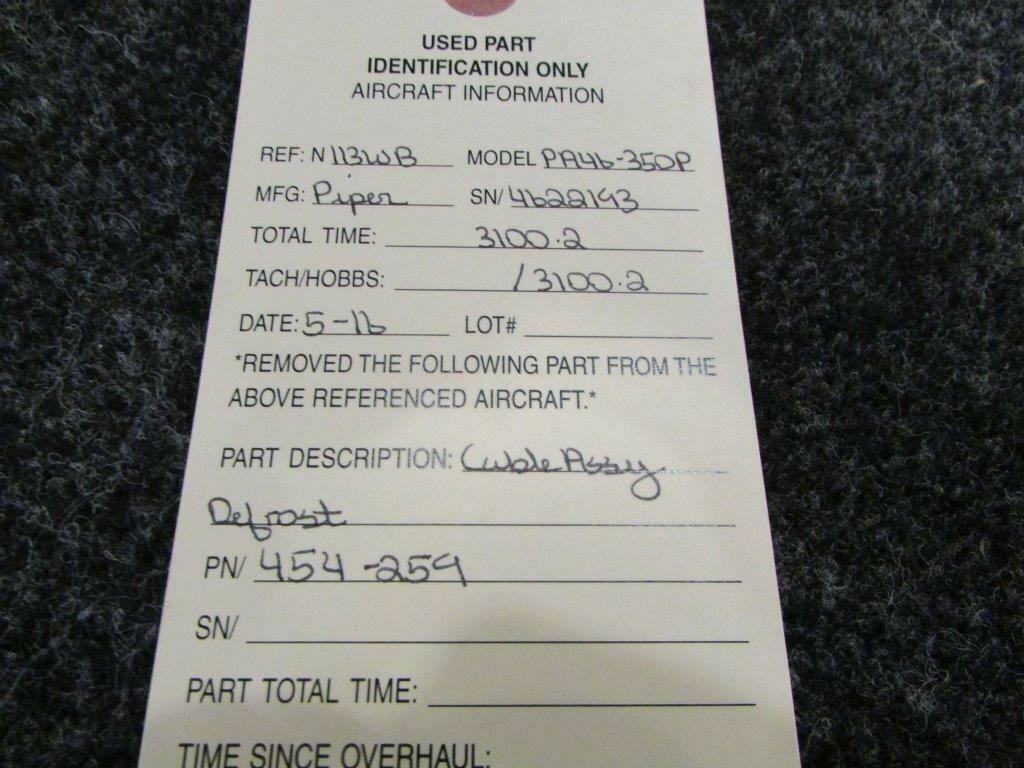 USED PART
IDENTIFICATION ONLY
AIRCRAFT INFORMATION
REF: N 113WB MODEL PA46-350P
MFG: Piper SN/ 4622193
TOTAL TIME: 3100.2
TACH/HOBBS: / 3100.2
DATE: 5-16 LOT#
*REMOVED THE FOLLOWING PART FROM THE
ABOVE REFERENCED AIRCRAFT.*
PART DESCRIPTION: Cable Assy
Defrost
PN/ 454-259
SN/
PART TOTAL TIME:
TIME SINCE OVERHAUL: